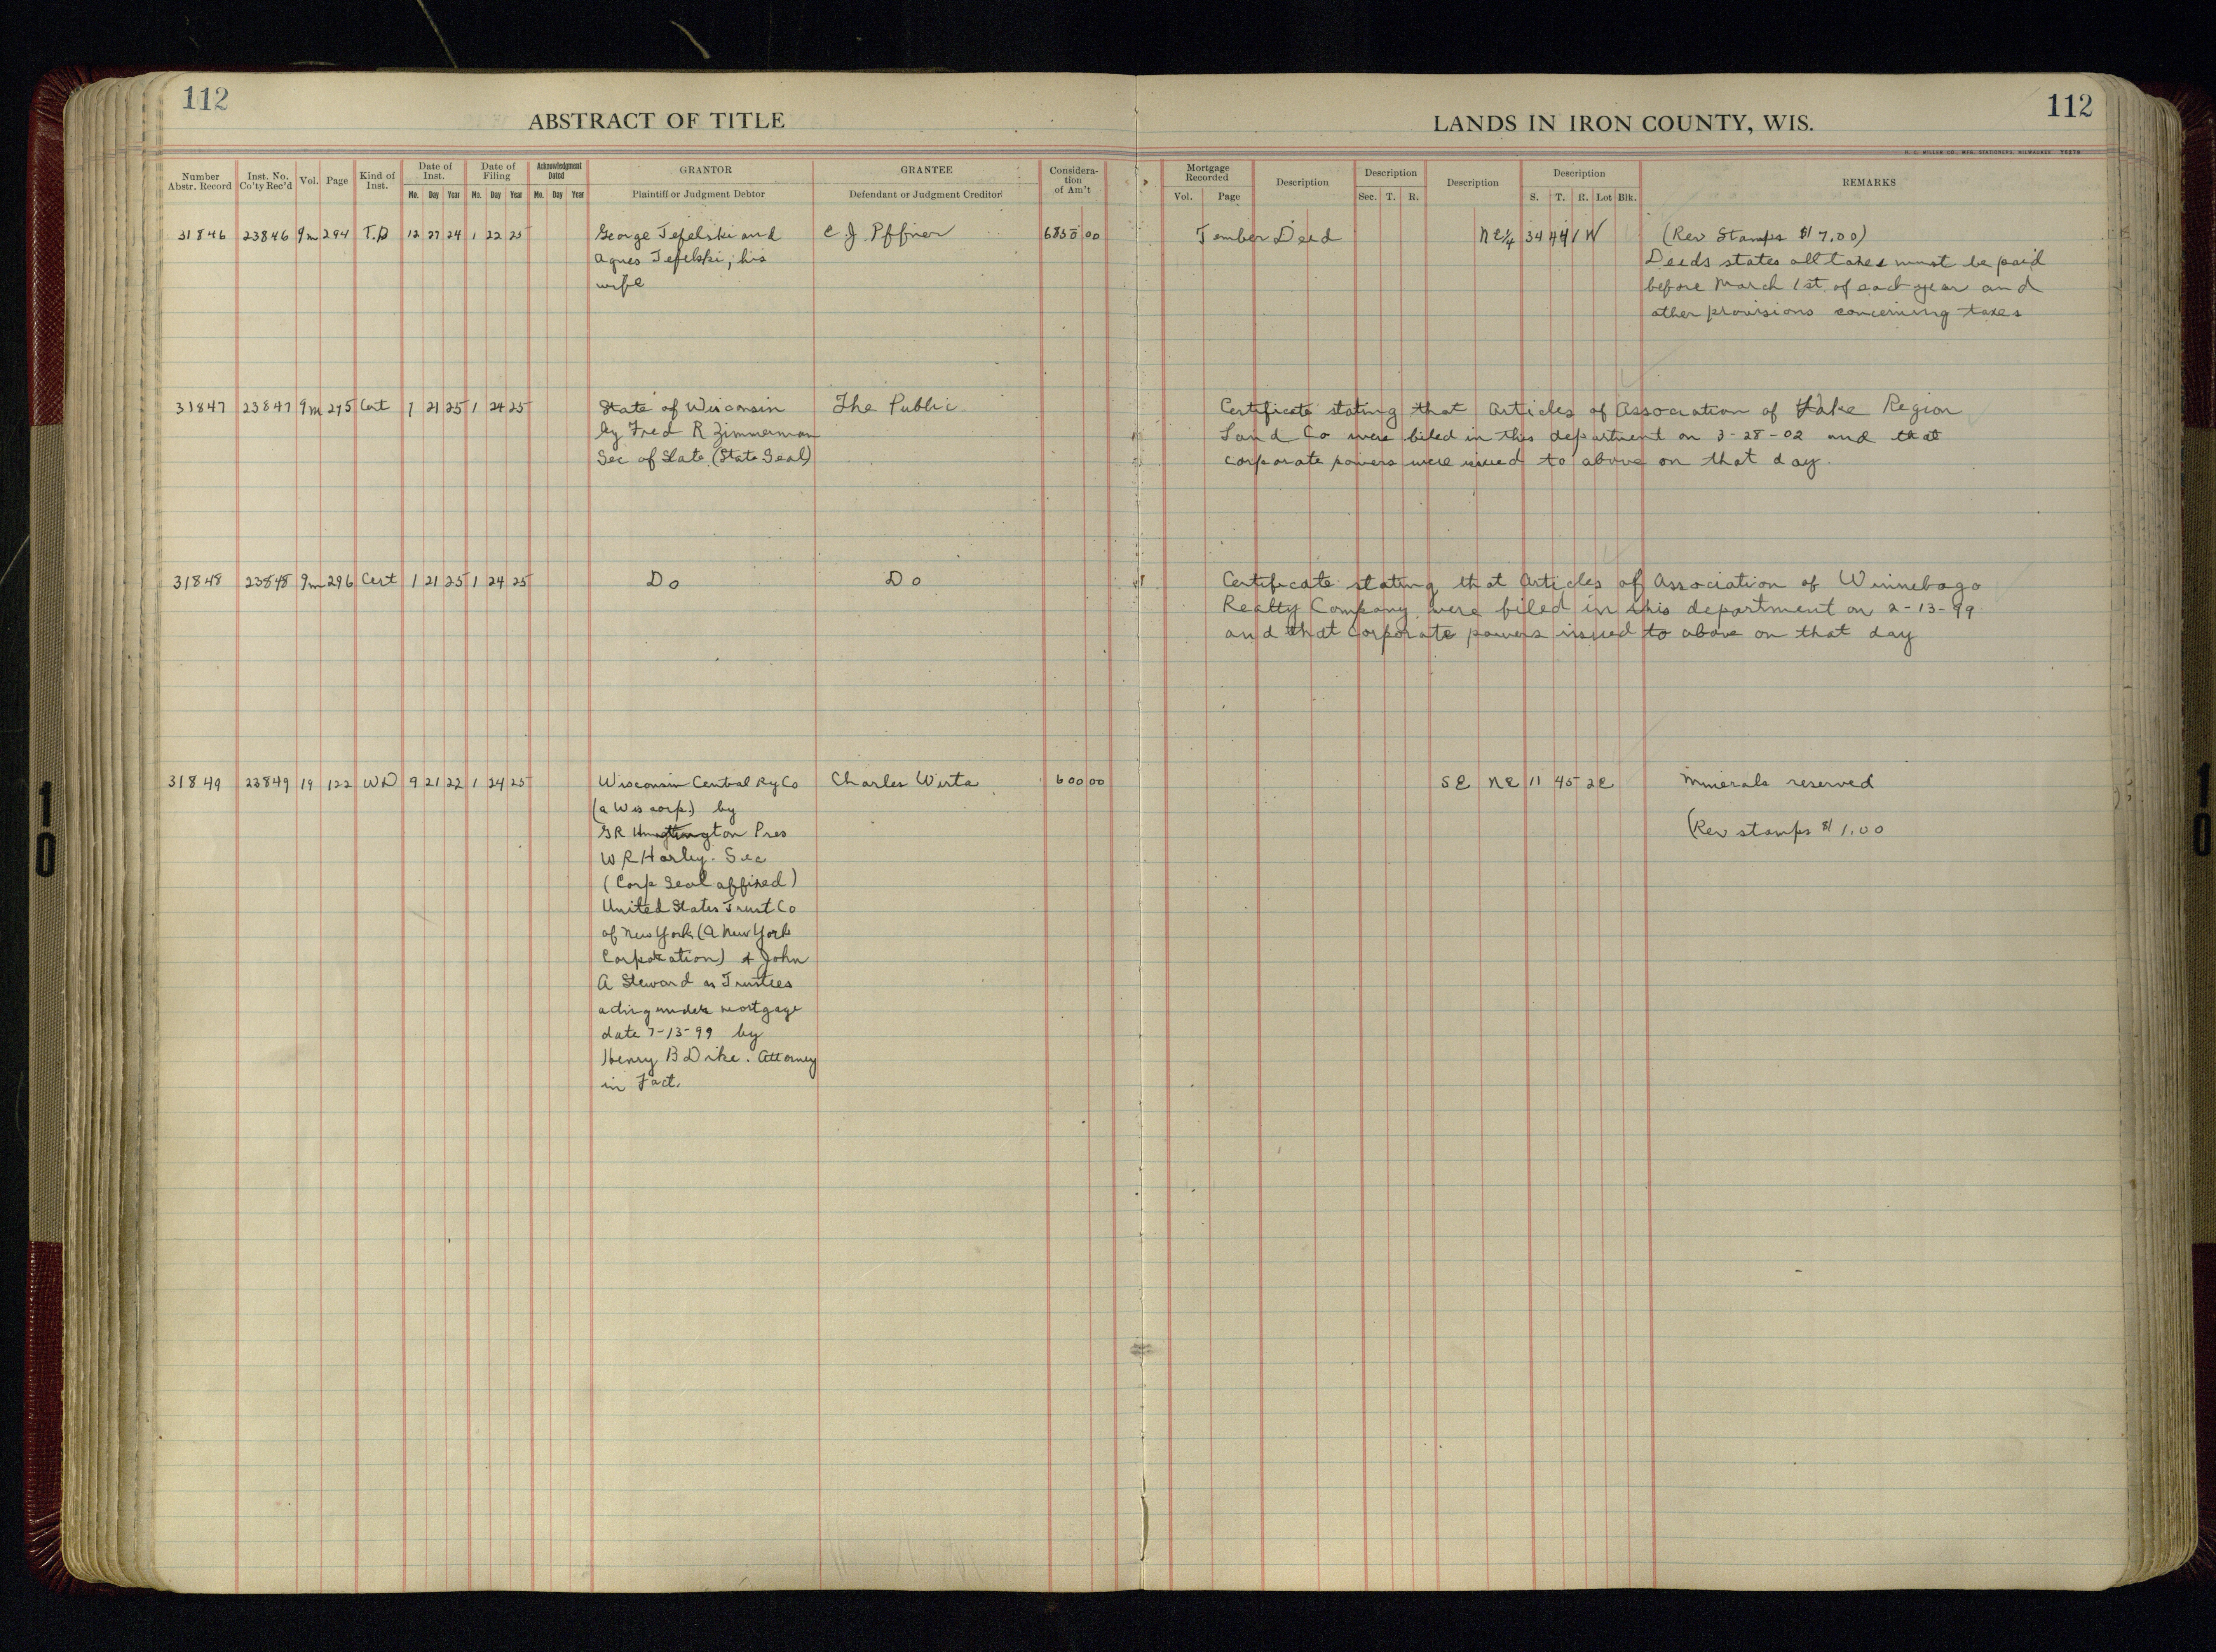 112
ABSTRACT OF TITLE
LANDS IN IRON COUNTY, WIS.
112
Number Abstr. Record | Inst. No. Co'ty Rec'd | Vol. | Page | Kind of Inst. | Date of Inst. Mo. Day Year | Date of Filing Mo. Day Year | Acknowledgment Dated Mo. Day Year | GRANTOR Plaintiff or Judgment Debtor | GRANTEE Defendant or Judgment Creditor | Considera-tion of Am't | Mortgage Recorded Vol. Page | Description | Description Sec. T. R. | Description | Description S. T. R. Lot Blk. | REMARKS
31846 23846 9m 294 T.D 12 27 24 1 22 25 George Tefelski and C J. Pffner 6850 00 Timber Deed NE¼ 34 44 1W (Rev Stamps $7.00)
Agnes Tefelski, his Deeds states all taxes must be paid
wife before March 1st of each year and
other provisions concerning taxes
31847 23847 9m 295 Cert 1 21 25 1 24 25 State of Wisconsin The Public Certificate stating that Articles of Association of Lake Region
by Fred R Zimmerman Land Co were filed in this department on 3-28-02 and that
Sec of State (State Seal) corporate powers were issued to above on that day.
31848 23848 9m 296 Cert 1 21 25 1 24 25 Do Do Certificate stating that Articles of Association of Winnebago
Realty Company were filed in this department on 2-13-99
and that corporate powers issued to above on that day
31849 23849 19 122 WD 9 21 22 1 24 25 Wisconsin Central Ry Co Charles Wirta 600 00 SE NE 11 45 2E Minerals reserved
(a Wis corp.) by
GR Huntington Pres (Rev stamps $1.00
W R Harley. Sec
(Corp Seal affixed)
United States Trust Co
of New York (a New York
Corporation) & John
A Steward as Trustees
acting under mortgage
date 7-13-99 by
Henry B Dike. Attorney
in Fact.
10
10